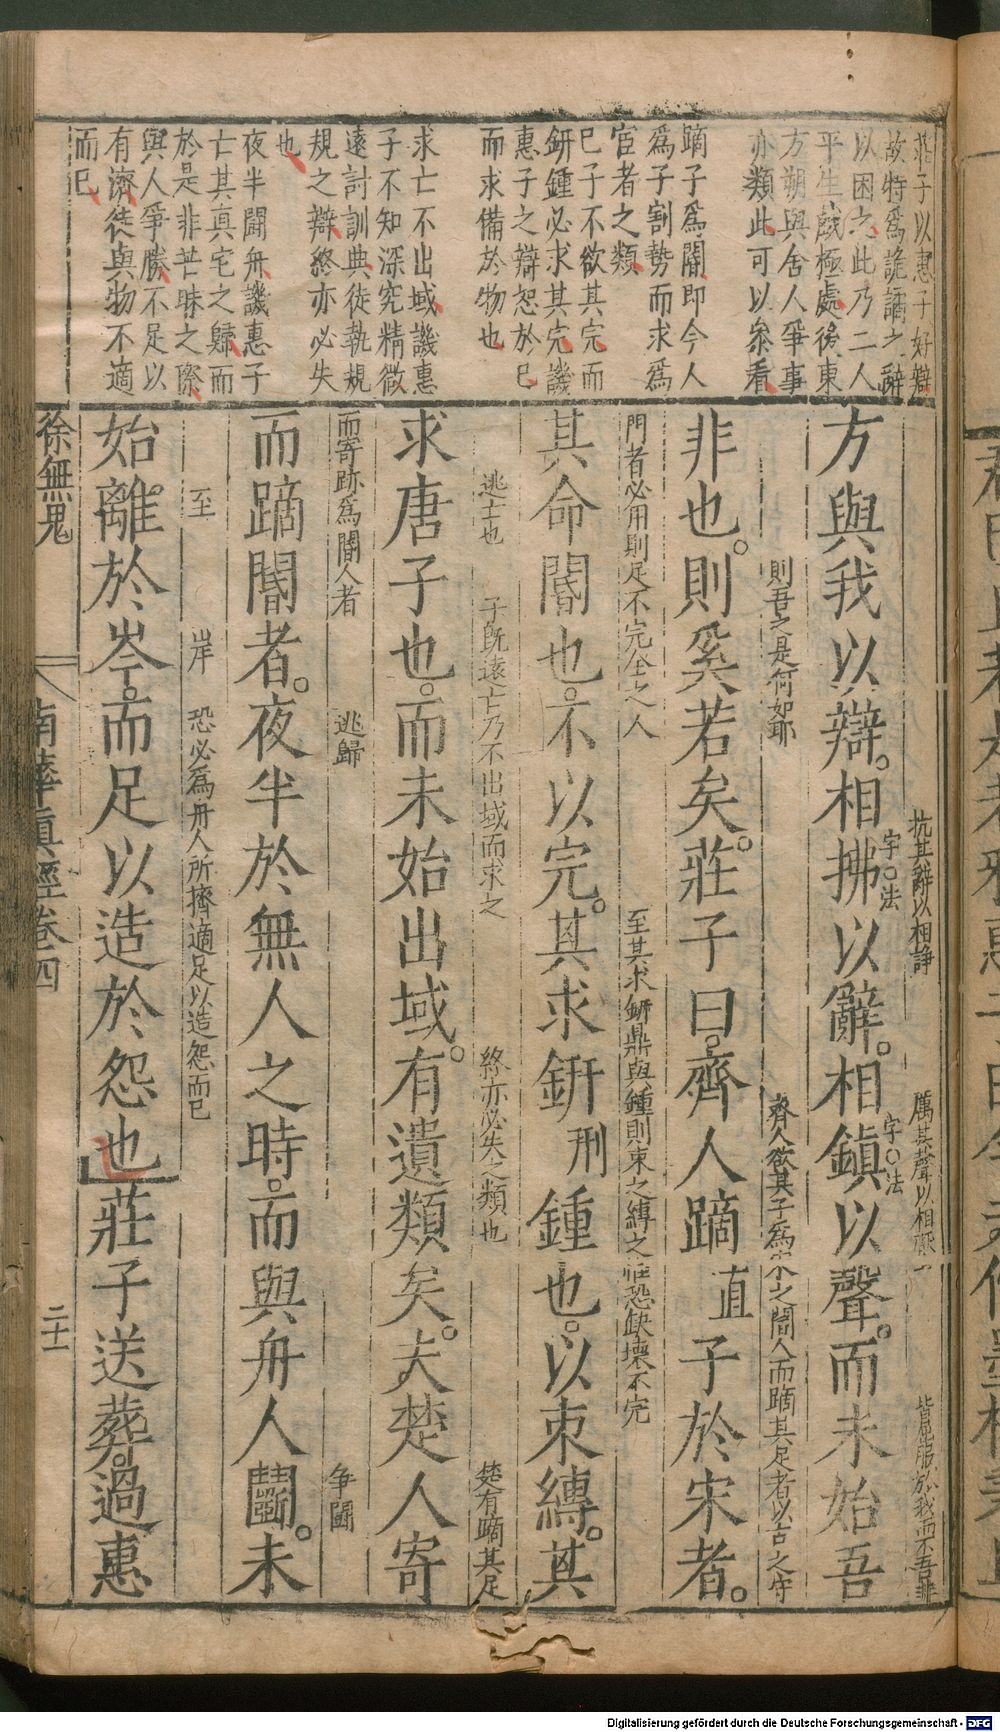 莊子以惠子好辯
故特爲詭譎之辭
以困之此乃二人
平生戲極處後東
方朔與舍人爭事
亦類此可以叅看
蹢子爲閽即今人
爲子割勢而求爲
宦者之類
巳子不欲其完而
鈃鍾必求其完譏
惠子之辯恕於巳
而求備於物也
求亡不出域譏惠
子不知深究精微
遠討訓典徒執規
規之辯終亦必失
也
夜半鬬舟譏惠子
亡其真宅之歸而
於是非芒昧之際
與人爭勝不足以
有濟徒與物不適
而巳
抗其辭以相諍　厲其聲以相　皆屈服於我而不吾非
字法　字法
方與我以辯相拂以辭相鎮以聲而未始吾
則吾之是何如耶　齊人欲其子爲宋之閽人而蹢其足者以古之守
非也則奚若矣莊子曰齊人蹢直子於宋者
門者必用刖足不完全之人　至其求鈃鼎與鍾則束之縛之莊恐缺壞不完
其命閽也不以完其求鈃刑鍾也以束縛其
逃亡也　子旣遠亡乃不出域而求之　終亦必失之類也　楚有蹢其足
求唐子也而未始出域有遺類矣夫楚人寄
而寄跡爲閽人者　逃歸　争鬬
而蹢閽者夜半於無人之時而與舟人鬬未
至　岸　恐必爲舟人所擠適足以造怨而已
始離於岑而足以造於怨也莊子送葬過惠
徐無鬼　南華眞經卷四　二十一
Digitalisierung gefördert durch die Deutsche Forschungsgemeinschaft - DFG